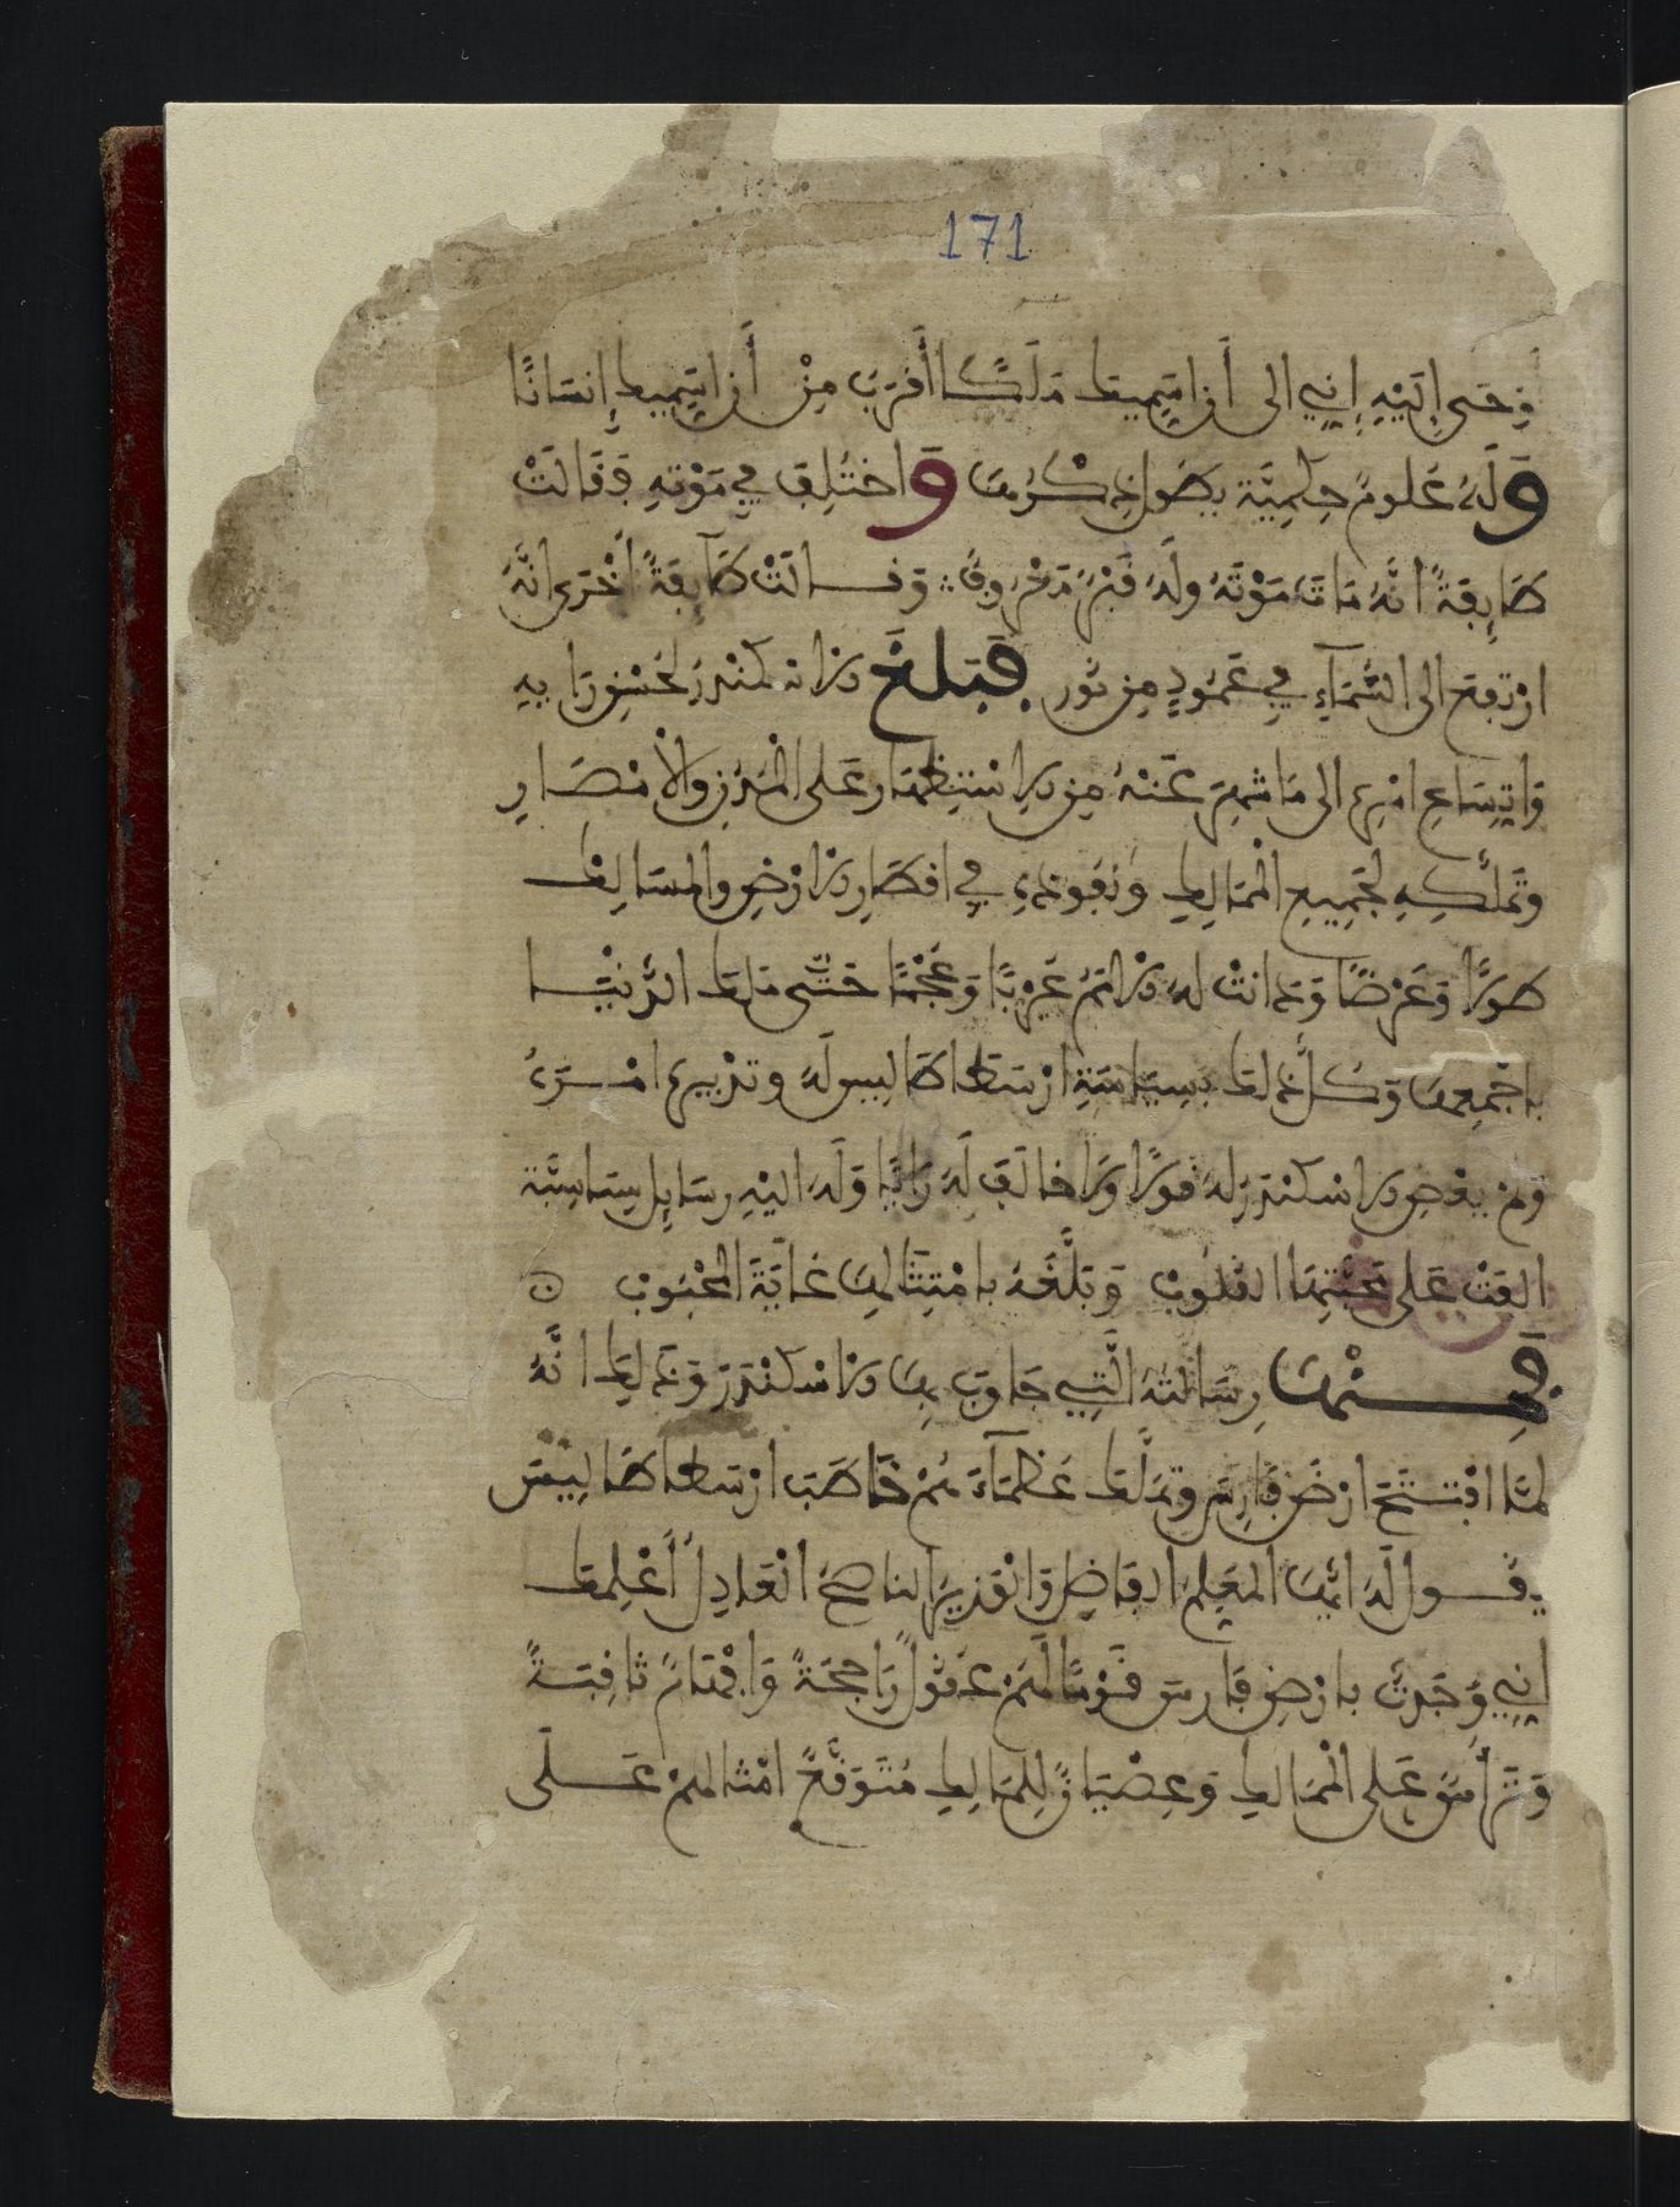 171
وحى إليه إني الى أن اسميك ملكا أقرب من أن اسميك إنسانا
وله علوم حكمية يطول ذكرها واختلف في موته فقالت
طايفة انه مات موته وله قبر معروف ∴ وقالت طايفة أخرى انه
ارتفع الى السماء في عمود من نور فبلغ الاسكندر لحسن رايه
واتساع امره الى ما شهر عنه من الاستظهار على المدن والأمصار
وتملكه لجميع الممالك ونفوذه في اقطار الارض والمسالك
طولا وعرضا ودانت له الامم عربا وعجما حتى ملك الدنيا
باجمعها وكل ذلك بسياسة ارسطاطاليس له وتدبيره امره
ولم يعص الاسكندر له قولا ولا خالف له رايا وله اليه رسايل سياسية
الفت على محبتها القلوب وبلغه بامتثالها غاية المحبوب ن
فمنها رسالته التي جاوب بها الاسكندر وذلك انه
لما افتتح ارض فارس وتملك عظماءهم خاطب ارسطاطاليس
يقول له ايها المعلم الفاضل والوزير الناصح العادل أعلمك
إني وجدت بارض فارس قوما لهم عقول راجحة وافهام ثاقبة
وترأس على الممالك وعصيان للمالك متوقع امثالهم على